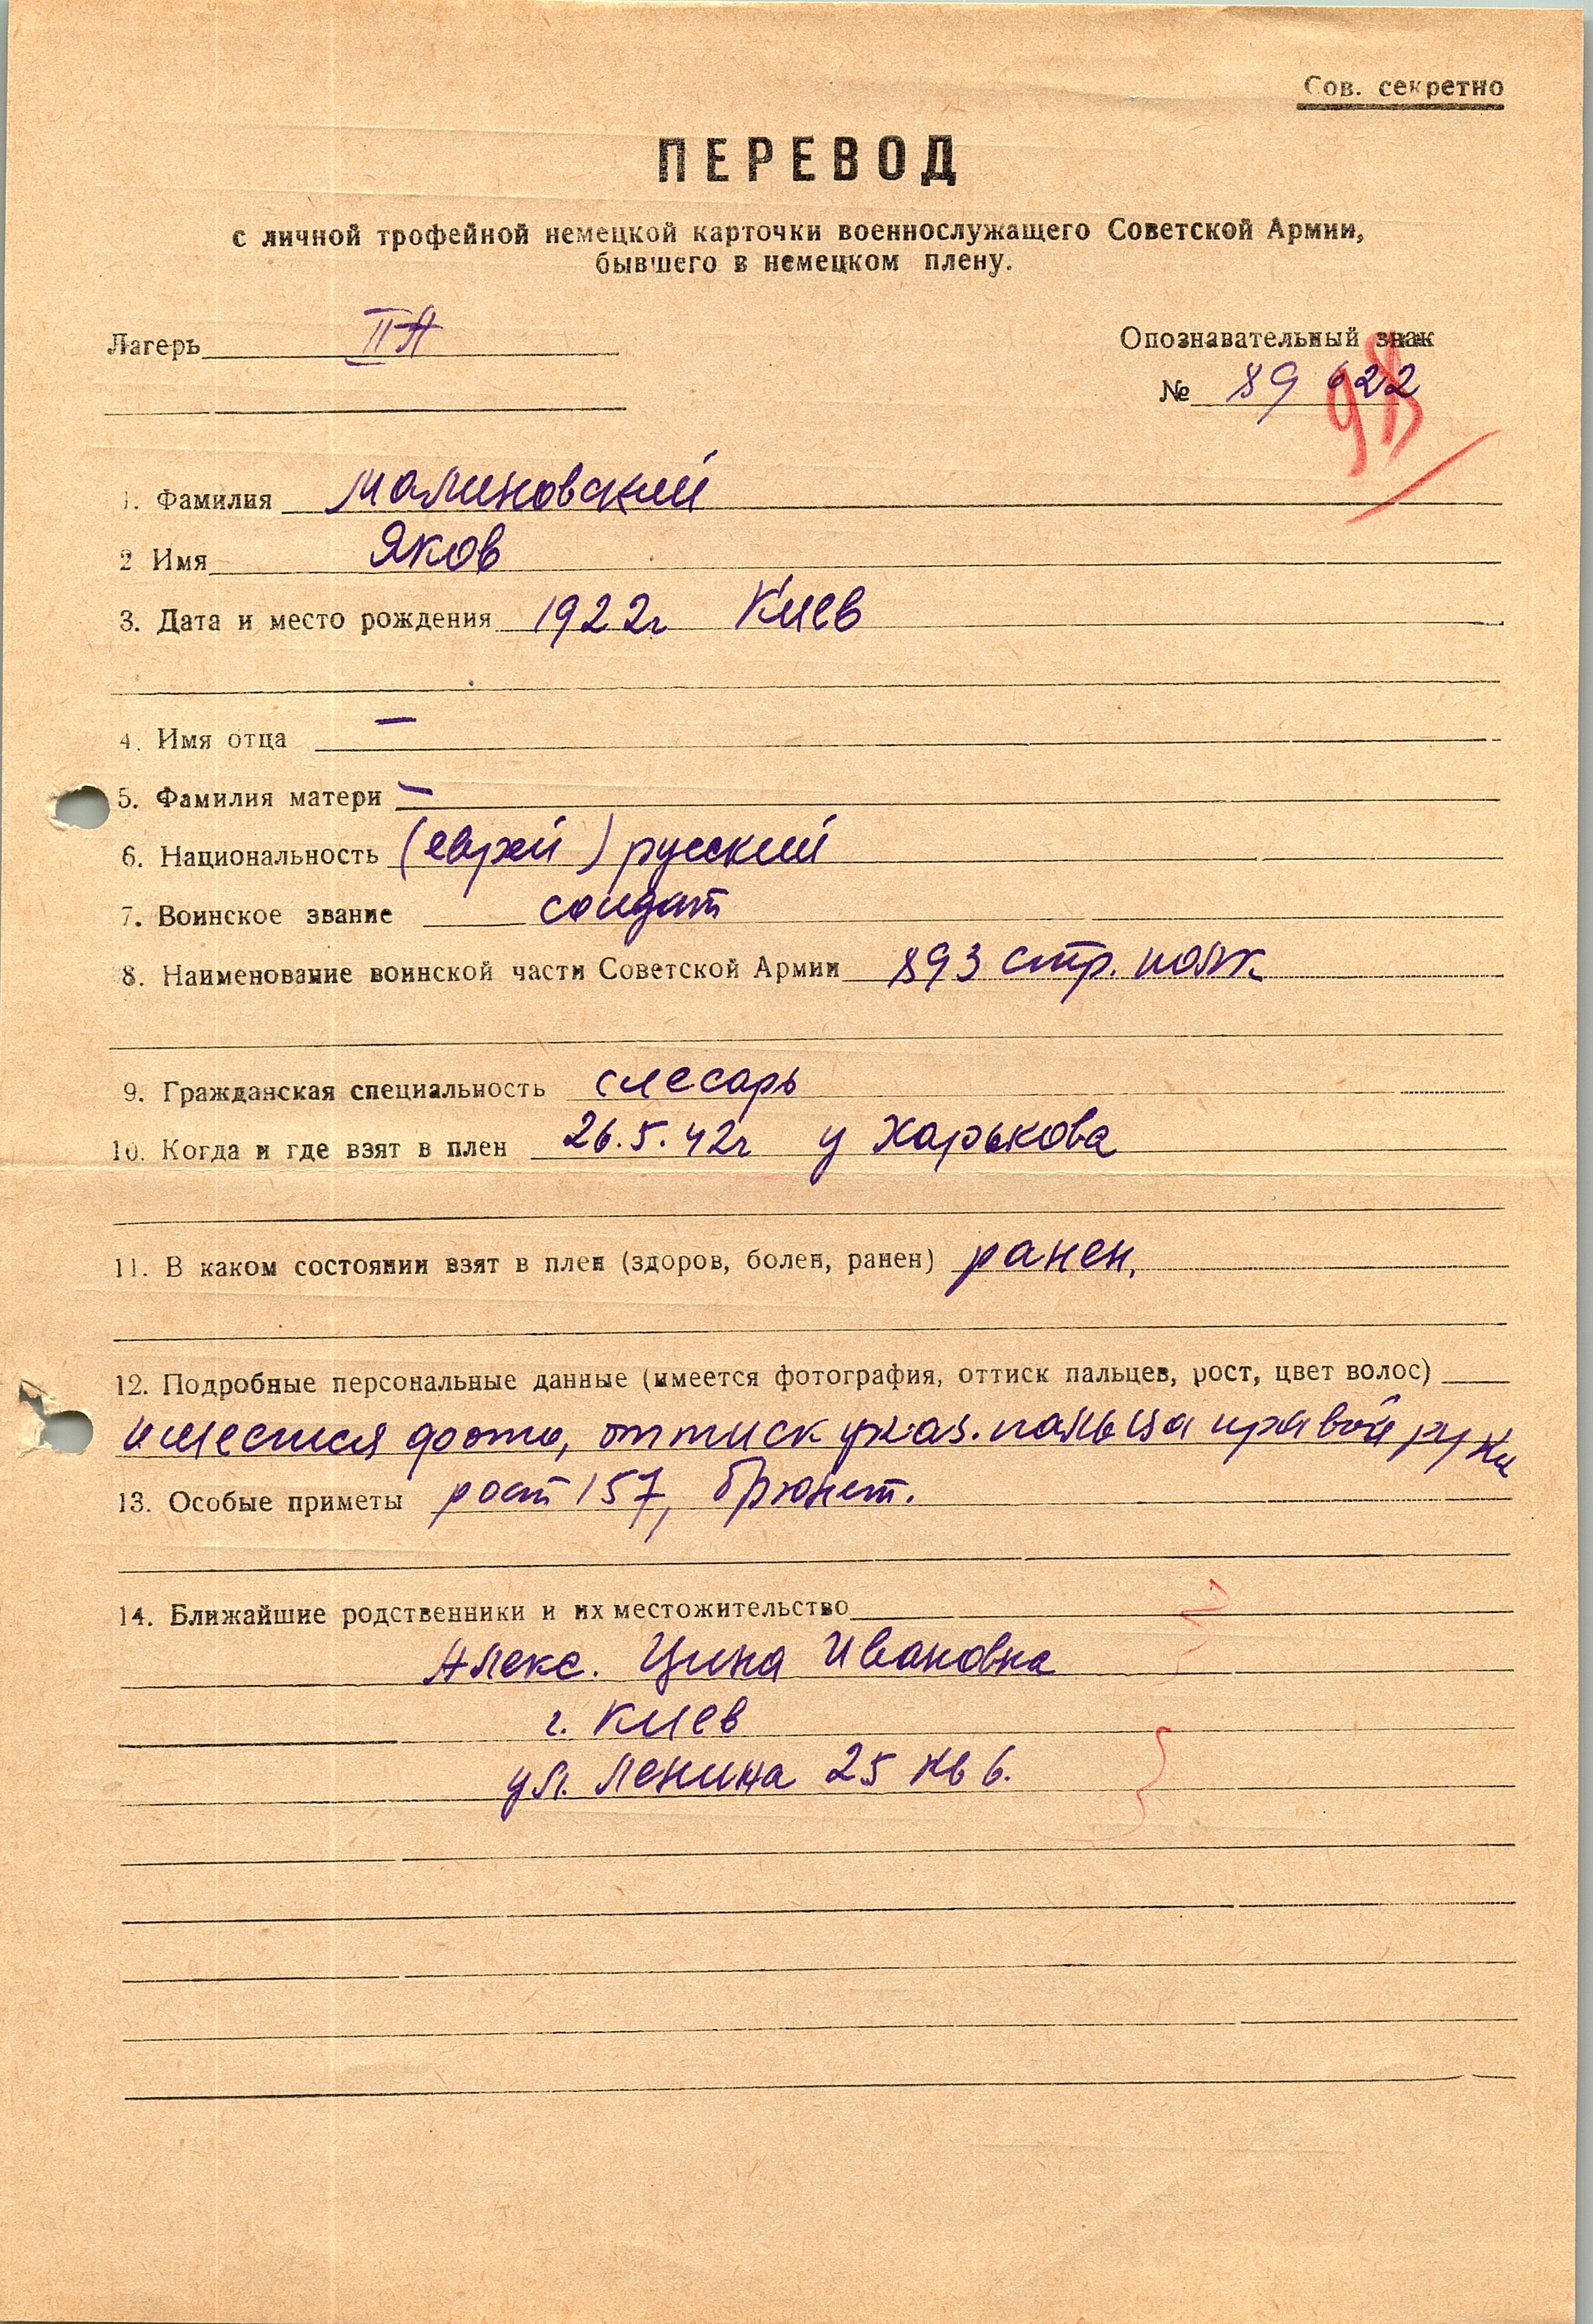 Сов. секретно
ПЕРЕВОД
с личной трофейной немецкой карточки военнослужащего Советской Армии,
бывшего в немецком плену.
Лагерь IIA
Опознавательный знак
№ 89 622
98
1. Фамилия Малиновский
2 Имя Яков
3. Дата и место рождения 1922г Киев
4. Имя отца —
5. Фамилия матери —
6. Национальность (еврей) русский
7. Воинское звание солдат
8. Наименование воинской части Советской Армии 893 стр. полк
9. Гражданская специальность слесарь
10. Когда и где взят в плен 26.5.42г у Харькова
11. В каком состоянии взят в плен (здоров, болен, ранен) ранен.
12. Подробные персональные данные (имеется фотография, оттиск пальцев, рост, цвет волос)
имеется фото, оттиск указ. пальца правой руки
13. Особые приметы рост 157, брюнет.
14. Ближайшие родственники и их местожительство
Алекс. Цина Ивановна
г. Киев
ул. Ленина 25 кв 6.